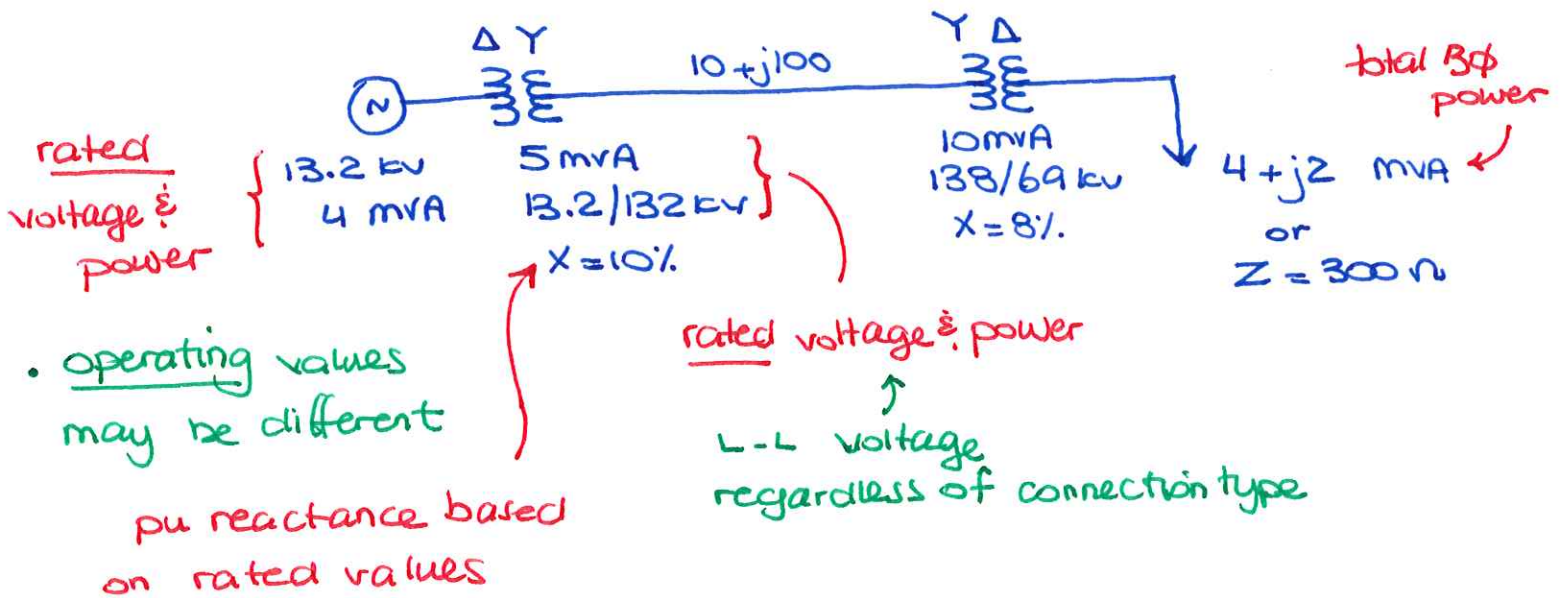 Δ Y
10 + j100
Y Δ
total 3φ
power
N
rated
voltage &
power
13.2 kv
4 mvA
5 mvA
13.2/132 kv
X = 10%
10 mvA
138/69 kv
X = 8%
4 + j2 mvA
or
Z = 300 Ω
rated voltage & power
• operating values
may be different
L-L voltage
regardless of connection type
pu reactance based
on rated values